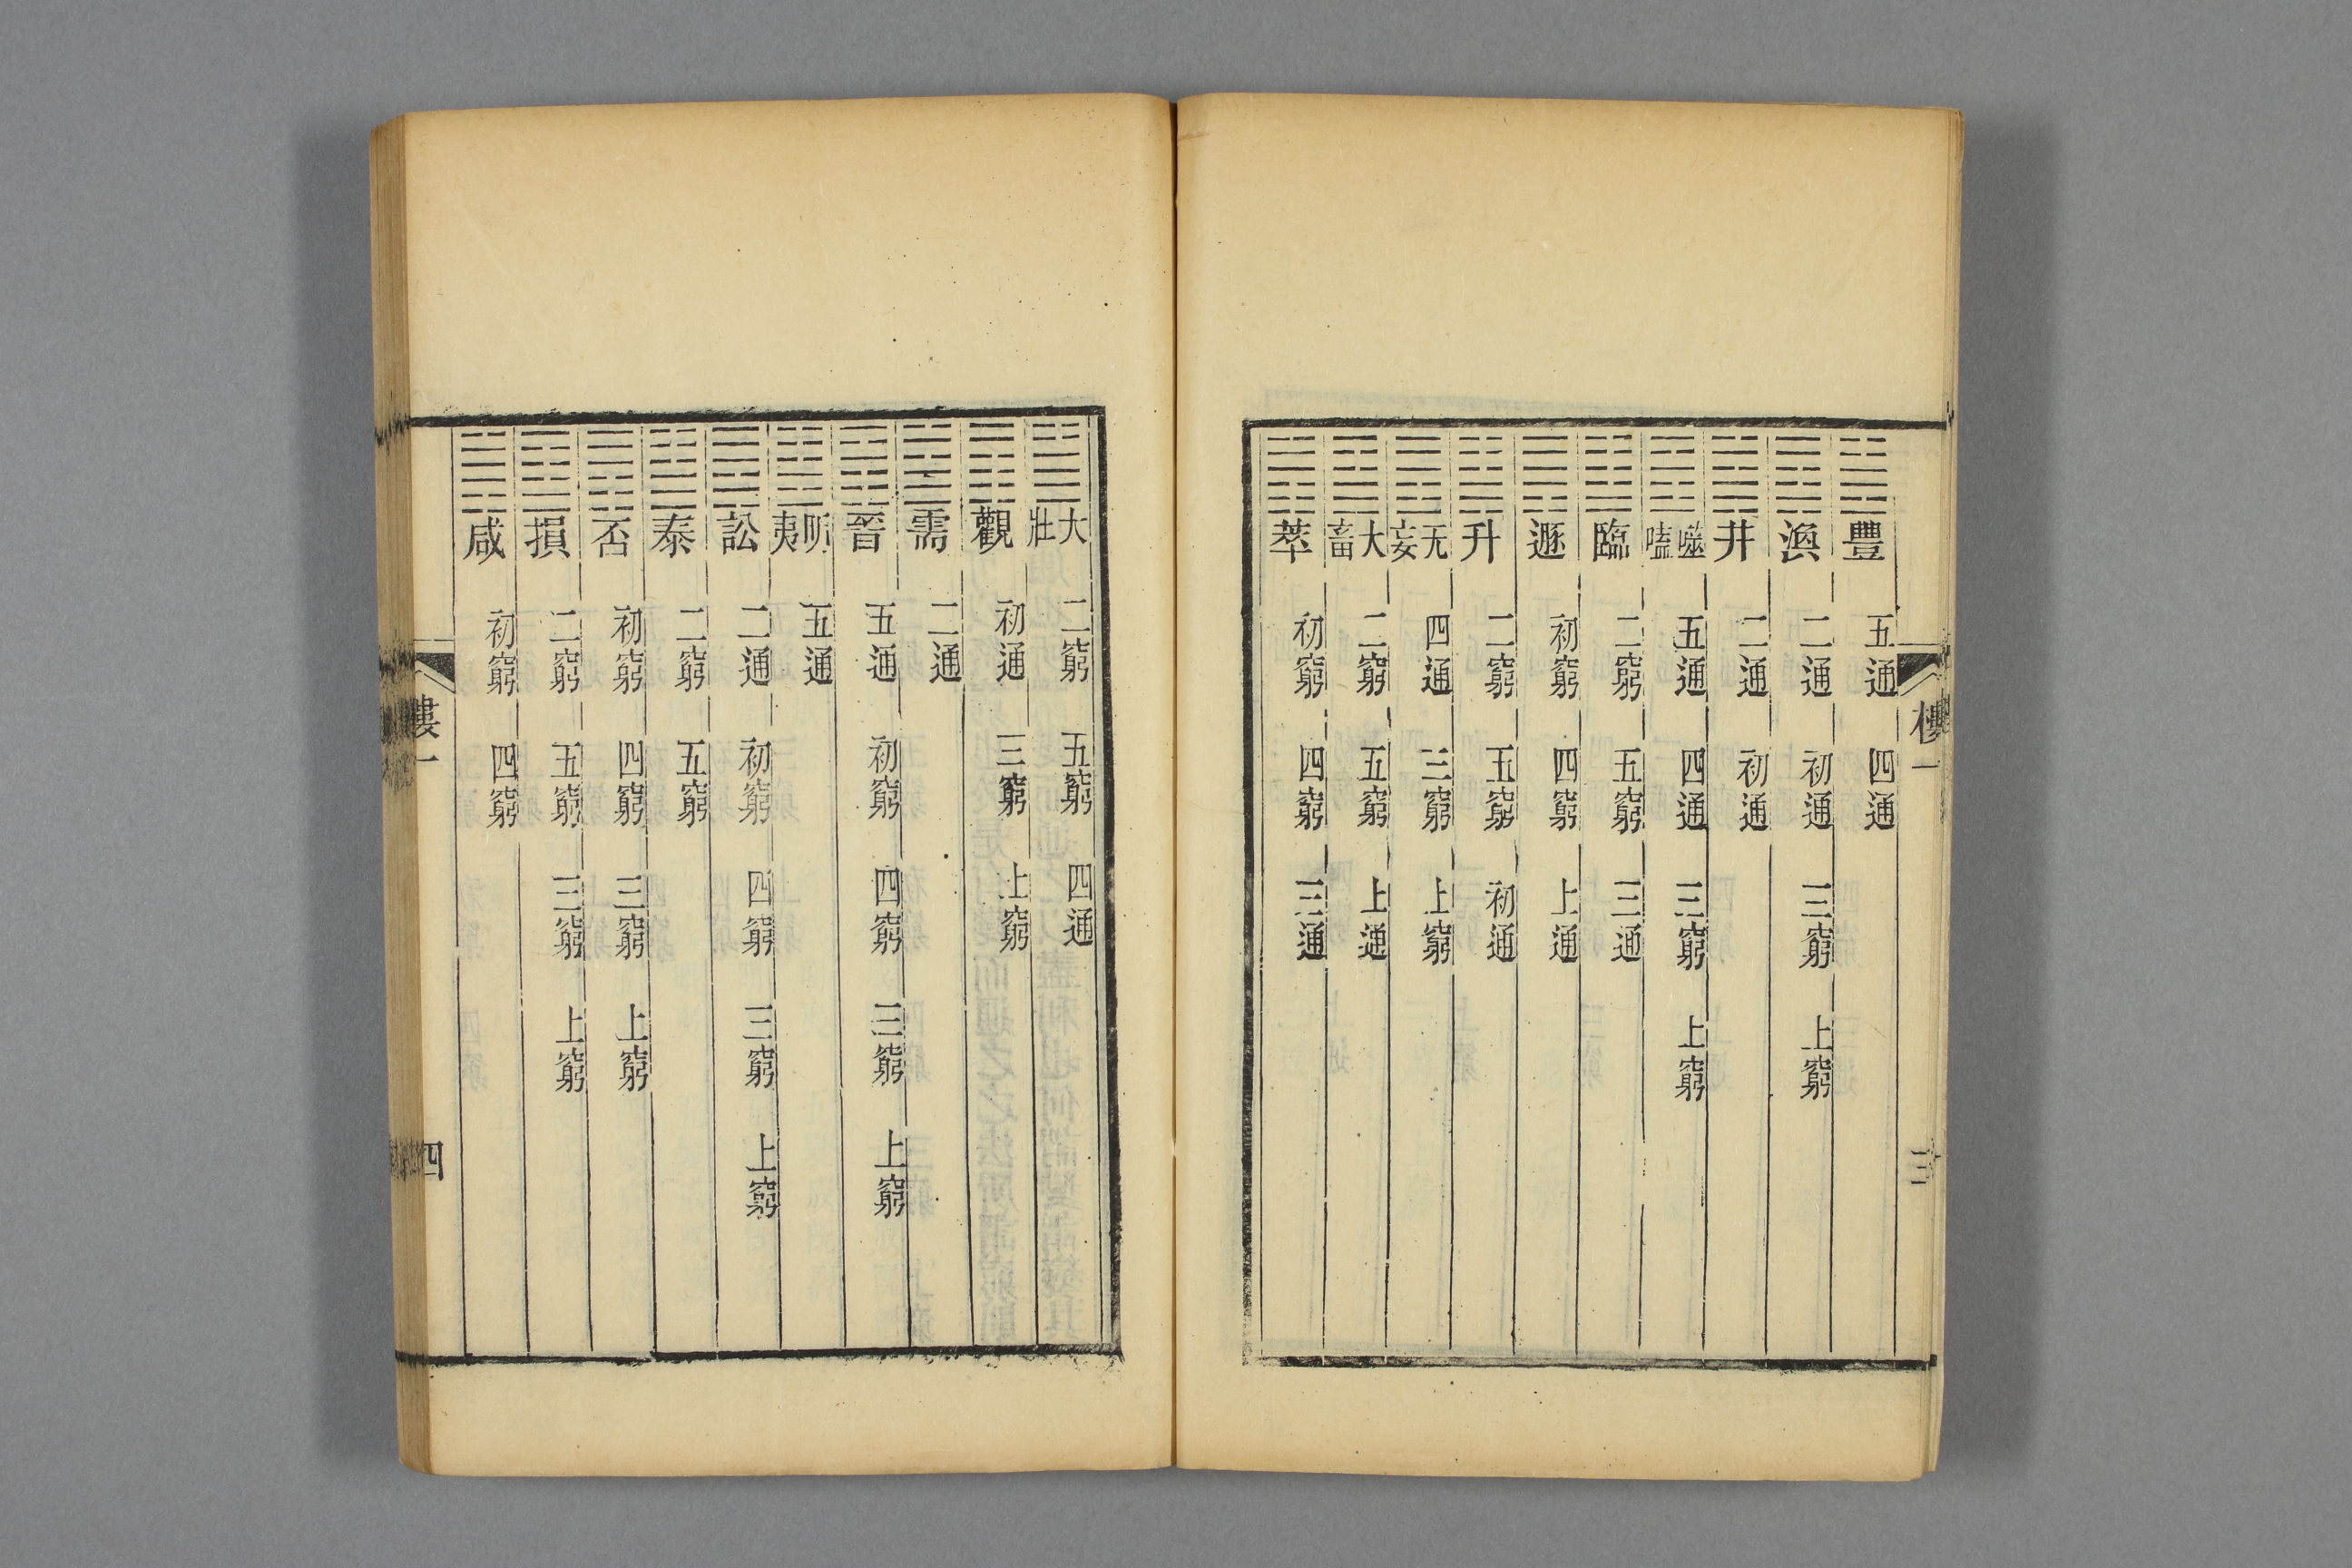 豐 五通 四通
渙 二通 初通 三窮 上窮
井 二通 初通
噬嗑 五通 四通 三窮 上窮
臨 二窮 五窮 三通
遯 初窮 四窮 上通
升 二窮 五窮 初通
无妄 四通 三窮 上窮
大畜 二窮 五窮 上通
萃 初窮 四窮 三通
三
大壯 二窮 五窮 四通
觀 初通 三窮 上窮
需 二通
晉 五通 初窮 四窮 三窮 上窮
明夷 五通
訟 二通 初窮 四窮 三窮 上窮
泰 二窮 五窮
否 初窮 四窮 三窮 上窮
損 二窮 五窮 三窮 上窮
咸 初窮 四窮
四